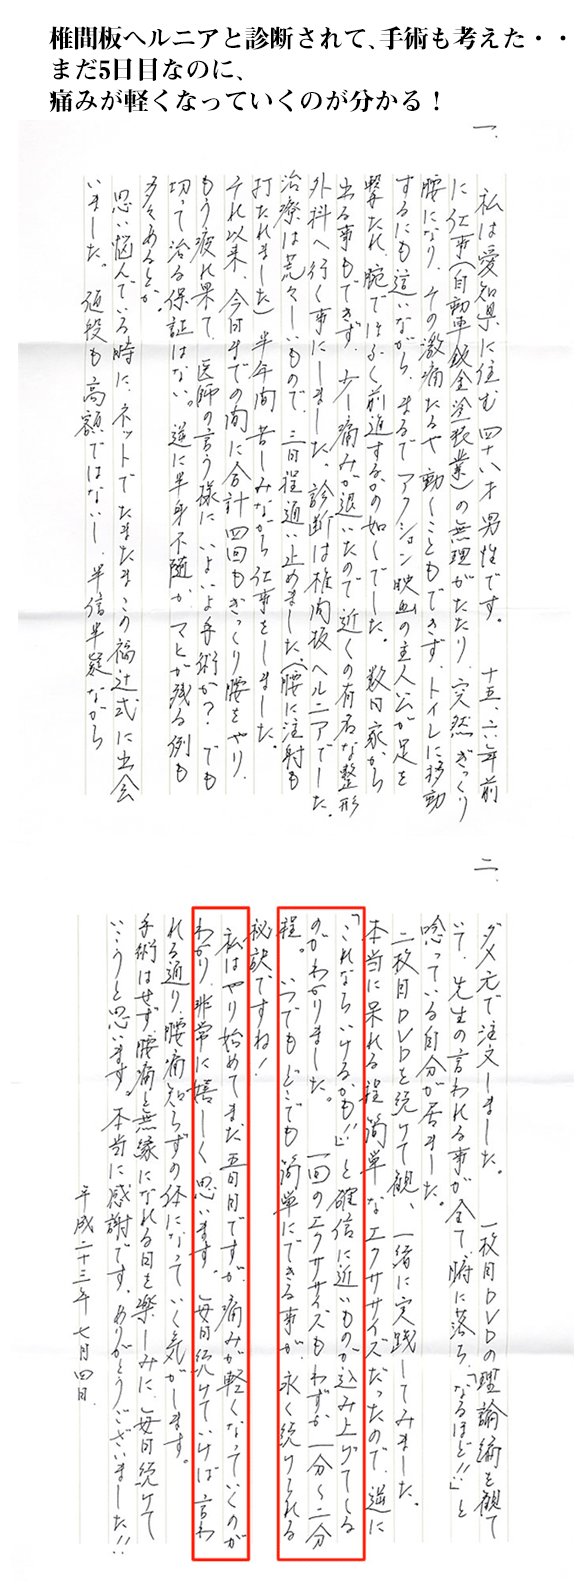 椎間板ヘルニアと診断されて、手術も考えた・・
まだ5日目なのに、
痛みが軽くなっていくのが分かる！
一、
私は愛知県に住む四十八才男性です。十五、六年前
に仕事(自動車鈑金塗装業)の無理がたたり、突然ぎっくり
腰になり、その激痛たるや動くこともできず、トイレに移動
するにも這いながら、まるでアクション映画の主人公が足を
撃たれ、腕でほふく前進するかの如くでした。数日家から
出る事もできず、少し痛みが退いたので近くの有名な整形
外科へ行く事にしました。診断は椎間板ヘルニアでした。
治療は荒々しいもので、三日程通い止めました。(腰に注射も
打たれました)半年間苦しみながら仕事をしました。
それ以来、今日までの間に合計四回もぎっくり腰をやり、
もう疲れ果て、医師の言う様に、いよいよ手術か？でも
切って治る保証はない。逆に半身不随か、マヒが残る例も
多々あるとか。
思い悩んでいる時に、ネットでたまたまこの福辻式に出会
いました。値段も高額ではないし、半信半疑ながら
二、
ダメ元で注文しました。一枚目DVDの理論編を観て
いて、先生の言われる事が全て、腑に落ち、「なるほど!!」と
唸っている自分が居ました。
二枚目DVDを続けて観、一緒に実践してみました。
本当に呆れる程簡単なエクササイズだったので、逆に
「これならいけるかも!!」と確信に近いものが込み上げてくる
のがわかりました。一回のエクササイズもわずか一分〜二分
程。いつでもどこでも簡単にできる事が、永く続けられる
秘訣ですね！
私はやり始めてまだ五日目ですが、痛みが軽くなっていくのが
わかり、非常に嬉しく思います。毎日続けていけば、言わ
れる通り、腰痛知らずの体になっていく気がします。
手術はせず、腰痛と無縁になれる日を楽しみに、毎日続けて
いこうと思います。本当に感謝です。ありがとうございました!!
平成二十三年七月四日